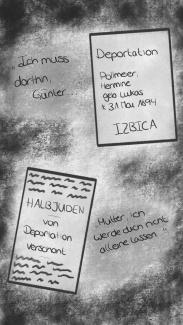 „Ich muss
dorthin,
Günter...
Deportation
Pollmeier,
Hermine
geb Lukas
* 31 Mai 1894
IZBICA
HALBJUDEN
von
Deportation
verschont
Mutter, ich
werde dich nicht
alleine lassen."